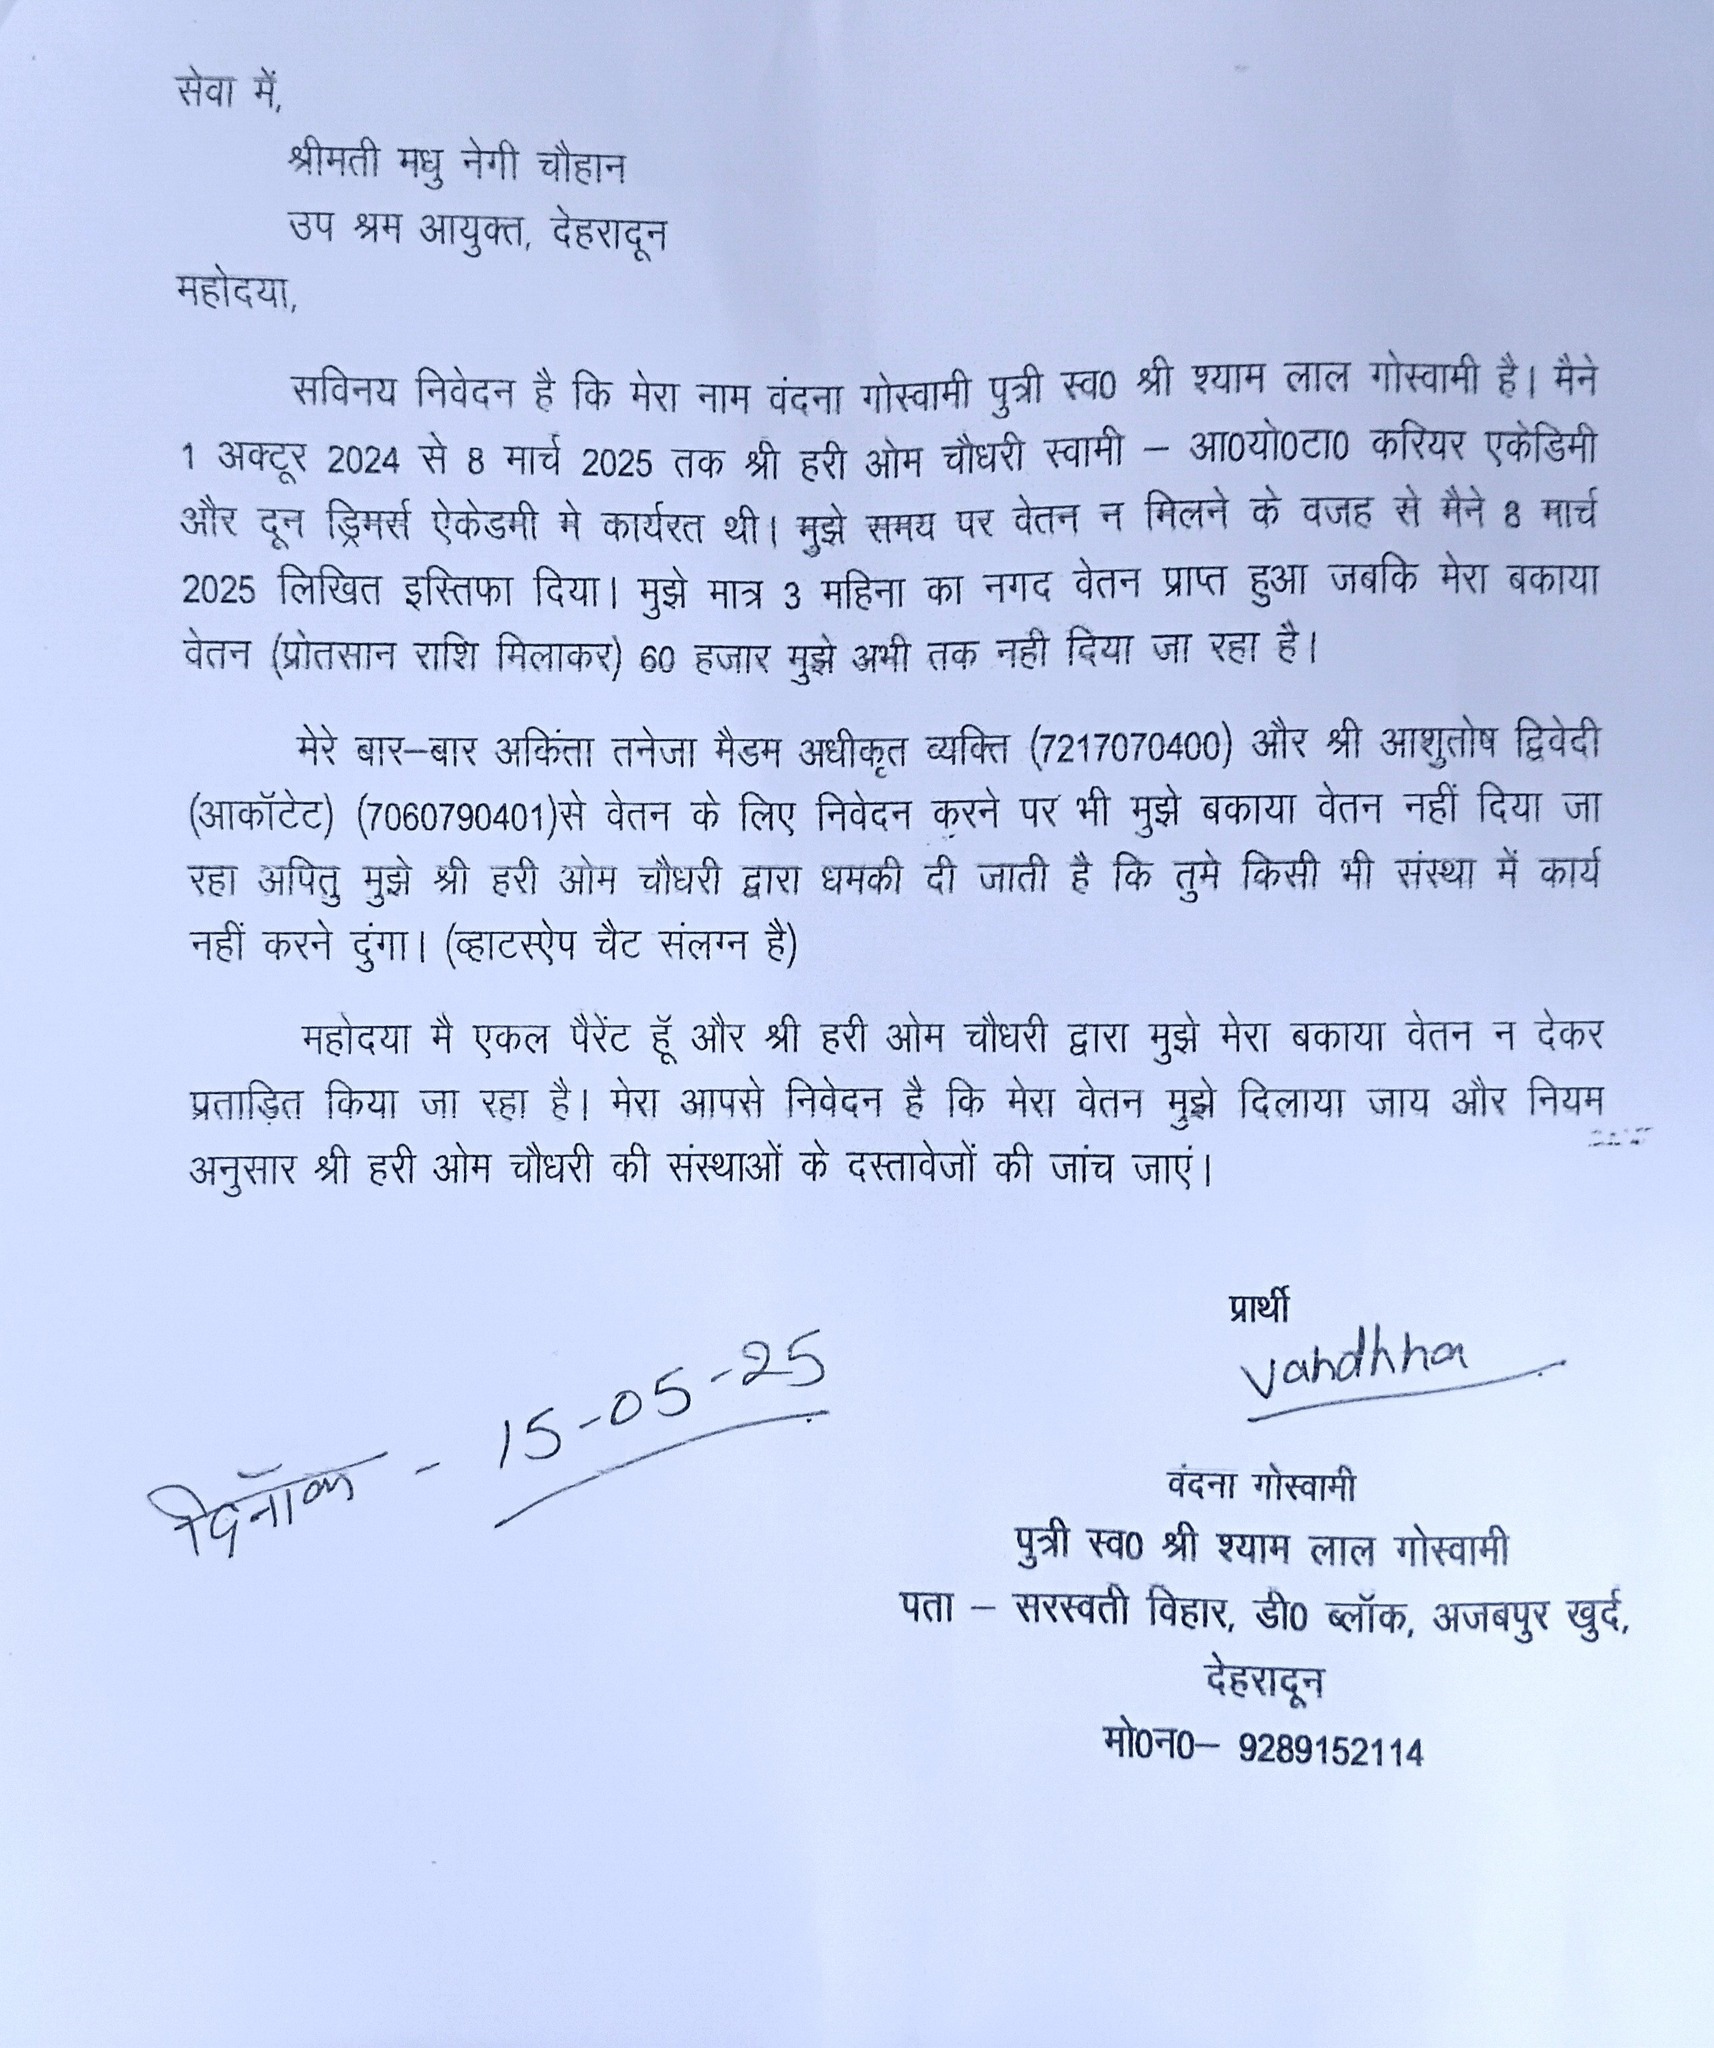 सेवा में,
श्रीमती मधु नेगी चौहान
उप श्रम आयुक्त, देहरादून
महोदया,
सविनय निवेदन है कि मेरा नाम वंदना गोस्वामी पुत्री स्व0 श्री श्याम लाल गोस्वामी है। मैने
1 अक्टूर 2024 से 8 मार्च 2025 तक श्री हरी ओम चौधरी स्वामी – आ0यो0टा0 करियर एकेडिमी
और दून ड्रिमर्स ऐकेडमी मे कार्यरत थी। मुझे समय पर वेतन न मिलने के वजह से मैने 8 मार्च
2025 लिखित इस्तिफा दिया। मुझे मात्र 3 महिना का नगद वेतन प्राप्त हुआ जबकि मेरा बकाया
वेतन (प्रोतसान राशि मिलाकर) 60 हजार मुझे अभी तक नही दिया जा रहा है।
मेरे बार–बार अकिंता तनेजा मैडम अधीकृत व्यक्ति (7217070400) और श्री आशुतोष द्विवेदी
(आकॉटेट) (7060790401)से वेतन के लिए निवेदन करने पर भी मुझे बकाया वेतन नहीं दिया जा
रहा अपितु मुझे श्री हरी ओम चौधरी द्वारा धमकी दी जाती है कि तुमे किसी भी संस्था में कार्य
नहीं करने दुंगा। (व्हाटस्ऐप चैट संलग्न है)
महोदया मै एकल पैरेंट हूॅ और श्री हरी ओम चौधरी द्वारा मुझे मेरा बकाया वेतन न देकर
प्रताड़ित किया जा रहा है। मेरा आपसे निवेदन है कि मेरा वेतन मुझे दिलाया जाय और नियम
अनुसार श्री हरी ओम चौधरी की संस्थाओं के दस्तावेजों की जांच जाएं।
प्रार्थी
Vandhna
दिनॉक - 15-05-25
वंदना गोस्वामी
पुत्री स्व0 श्री श्याम लाल गोस्वामी
पता – सरस्वती विहार, डी0 ब्लॉक, अजबपुर खुर्द,
देहरादून
मो0न0– 9289152114